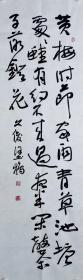 黄梅时节家家雨青草池塘
處處蛙有约不来过夜半闲敲棋
子落灯花